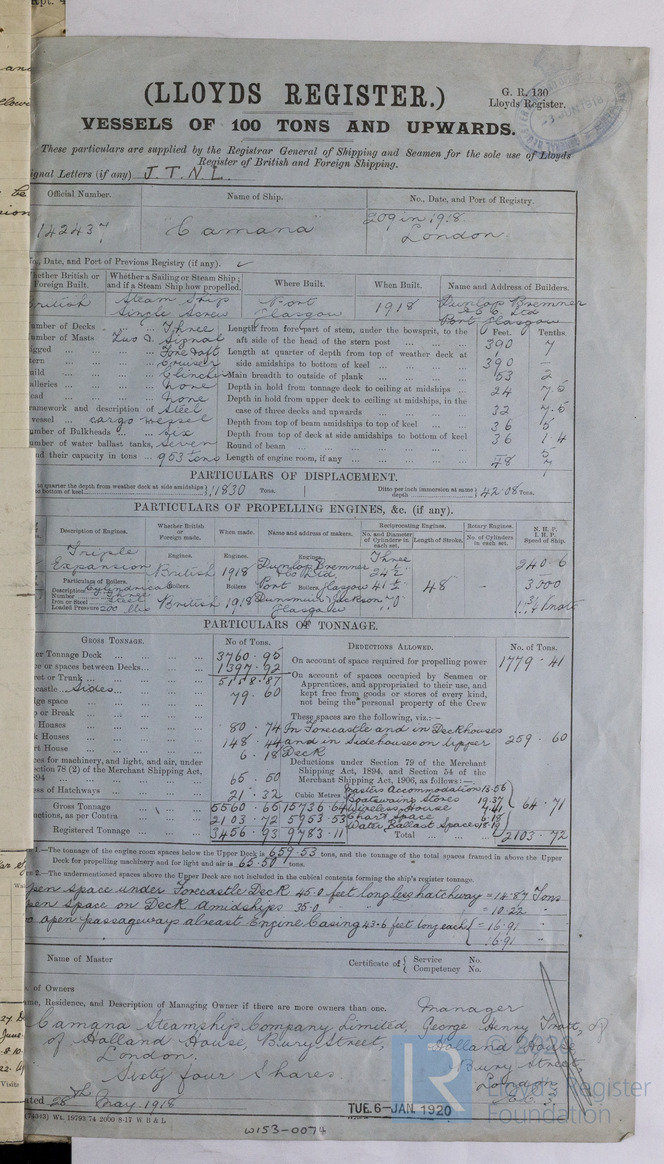 (LLOYDS REGISTER.)
G. R. 130
Lloyds Register.
VESSELS OF 100 TONS AND UPWARDS.
These particulars are supplied by the Registrar General of Shipping and Seamen for the sole use of Lloyds
Register of British and Foreign Shipping.
ignal Letters (if any) J.T.N.L.
Official Number. Name of Ship. No., Date, and Port of Registry.
142437 "Camana" 209 in 1918
London
No., Date, and Port of Previous Registry (if any).
Whether British or Foreign Built. Whether a Sailing or Steam Ship; and if a Steam Ship how propelled. Where Built. When Built. Name and Address of Builders.
British Steam Ship Single Screw Port Glasgow 1918 Dunlop Bremner & Co Ltd Port Glasgow
umber of Decks Three Length from fore part of stem, under the bowsprit, to the Feet. Tenths.
umber of Masts Two & Signal aft side of the head of the stern post 390 7
igged Fore & aft Length at quarter of depth from top of weather deck at
tern Cruiser side amidships to bottom of keel 390 —
uild Clincher Main breadth to outside of plank 53 2
alleries none Depth in hold from tonnage deck to ceiling at midships 24 7.5
ead none Depth in hold from upper deck to ceiling at midships, in the
ramework and description of Steel case of three decks and upwards 32 7.5
vessel cargo vessel Depth from top of beam amidships to top of keel 36 5
umber of Bulkheads Six Depth from top of deck at side amidships to bottom of keel 36 1.4
umber of water ballast tanks, Seven Round of beam
nd their capacity in tons 953 tons Length of engine room, if any 48 7
PARTICULARS OF DISPLACEMENT.
quarter the depth from weather deck at side amidships to bottom of keel 11830 Tons. Ditto per inch immersion at same depth 42.08 Tons.
PARTICULARS OF PROPELLING ENGINES, &c. (if any).
Description of Engines. Whether British or Foreign made. When made. Name and address of makers. Reciprocating Engines. Rotary Engines. N. H. P. I. H. P. Speed of Ship.
No. and Diameter of Cylinders in each set. Length of Stroke. No. of Cylinders in each set.
Triple Expansion Engines. British Engines. 1918 Engines. Dunlop Bremner & Co Ltd Port Glasgow Three 24½ 41½ 70 48" - 240.6 3000
Particulars of Boilers.
Description Cylindrical
Number
Iron or Steel Steel
Loaded Pressure 200 lbs
Boilers British Boilers 1918 Boilers Dunsmuir & Jackson Glasgow Knots
PARTICULARS OF TONNAGE.
GROSS TONNAGE. No of Tons. DEDUCTIONS ALLOWED. No. of Tons.
er Tonnage Deck 3760.95 On account of space required for propelling power 1779.41
ce or spaces between Decks 1397.92
ret or Trunk 5158.87 On account of spaces occupied by Seamen or
castle Sides 79.60 Apprentices, and appropriated to their use, and
dge space kept free from goods or stores of every kind,
p or Break not being the personal property of the Crew
These spaces are the following, viz:—
Houses 80.74 In Forecastle and in Deckhouses
k Houses 148.44 and in Sidehouses on Upper 259.60
rt House 6.18 Deck
es for machinery, and light, and air, under Deductions under Section 79 of the Merchant
ection 78 (2) of the Merchant Shipping Act, Shipping Act, 1894, and Section 54 of the
894 65.50 Merchant Shipping Act, 1906, as follows:—
ess of Hatchways 21.32 Cubic Metres. Masters Accommodation 13.56
Boatswains Stores 19.37
Gross Tonnage 5560.65 15736.64 Wireless House 7.41 64.71
uctions, as per Contra 2103.72 5953.53 Chart Space 6.18
Water Ballast Spaces 18.19
Registered Tonnage 3456.93 9783.11 Total 2103.72
1.—The tonnage of the engine room spaces below the Upper Deck is 659.53 tons, and the tonnage of the total spaces framed in above the Upper
Deck for propelling machinery and for light and air is 65.50 tons.
2.—The undermentioned spaces above the Upper Deck are not included in the cubical contents forming the ship's register tonnage.
pen space under Forecastle Deck 45.0 feet long less hatchway = 14.87 Tons
pen space on Deck Amidships 35.0 " " = 10.22 "
o open passageways abreast Engine Casing 43.6 feet long each = 16.91 "
16.91 "
Name of Master Certificate of Service No.
Competency No.
. of Owners
ame, Residence, and Description of Managing Owner if there are more owners than one. Manager
Camana Steamship Company Limited, George Henry Tratt, of
of Holland House, Bury Street, Holland House
London. Bury Street
Sixty four Shares London
E.C.3.
ated 28th May 1918
TUE. 6-JAN. 1920
(74343) Wt. 19793/74 2000 8-17 W B & L
W153-0074
© 2020
LR
Lloyd's Register
Foundation